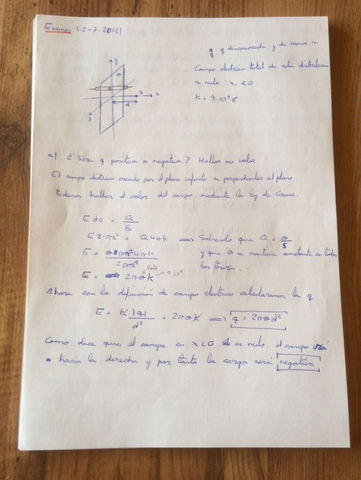 Examen (2-7-2012)
q q desconocida y de masa m
Campo electrico total de esta distribucion
es nulo x<0
K = 9·10⁹ C
a) ¿ Sera q positiva o negativa? Hallar su valor
El campo electrico creado por el plano infinito es perpendicular al plano.
Podemos hallar el valor del campo mediante la ley de Gauss.
E ds = Q
E 2πr² = Q 4πK ⟹ Sabiendo que
y que σ se mantiene constante en todos
los puntos.
E =
E = 2πσK
Ahora con la definicion de campo electrico calcularemos la q
E = K·|q| / d² = 2πσK ⟹ q = 2πσd²
Como dice que el campo en x<0 es nulo, el campo va
hacia la derecha y por tanto la carga sera negativa